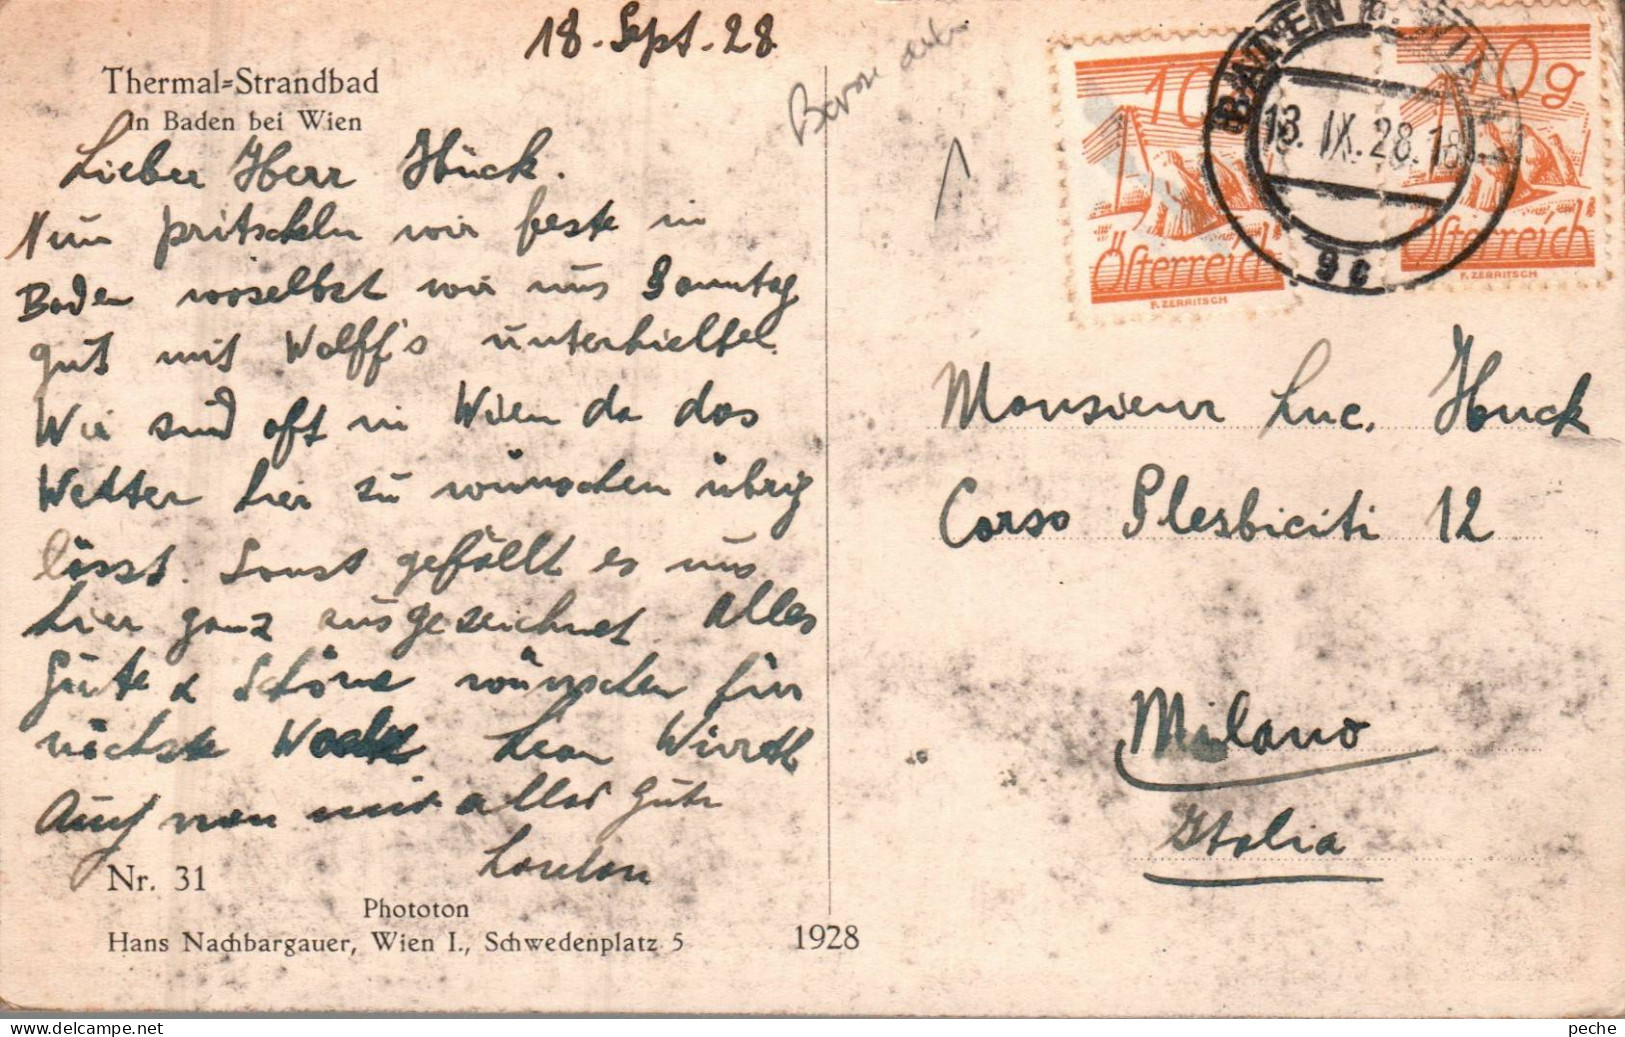 18. Sept. 28
Thermal=Strandbad
in Baden bei Wien
Lieber Herr Hück.
Nun pritscheln wir feste in
Baden woselbst wir uns Sonntag
gut mit Wolff's unterhielten.
Wir sind oft in Wien da das
Wetter hier zu wünschen übrig
lässt. Sonst gefällt es uns
hier ganz ausgezeichnet. Alles
Gute & Schöne wünschen für
nächste Woche
Auch von mir alles Gute
Nr. 31
Phototon
Hans Nachbargauer, Wien I., Schwedenplatz 5
1928
10
Österreich
F. ZERRITSCH
10g
Österreich
F. ZERRITSCH
BADEN B. WIEN
18. IX. 28. 18
9c
Monsieur Luc. Huck
Corso Plesbiciti 12
Milano
Italia
peche